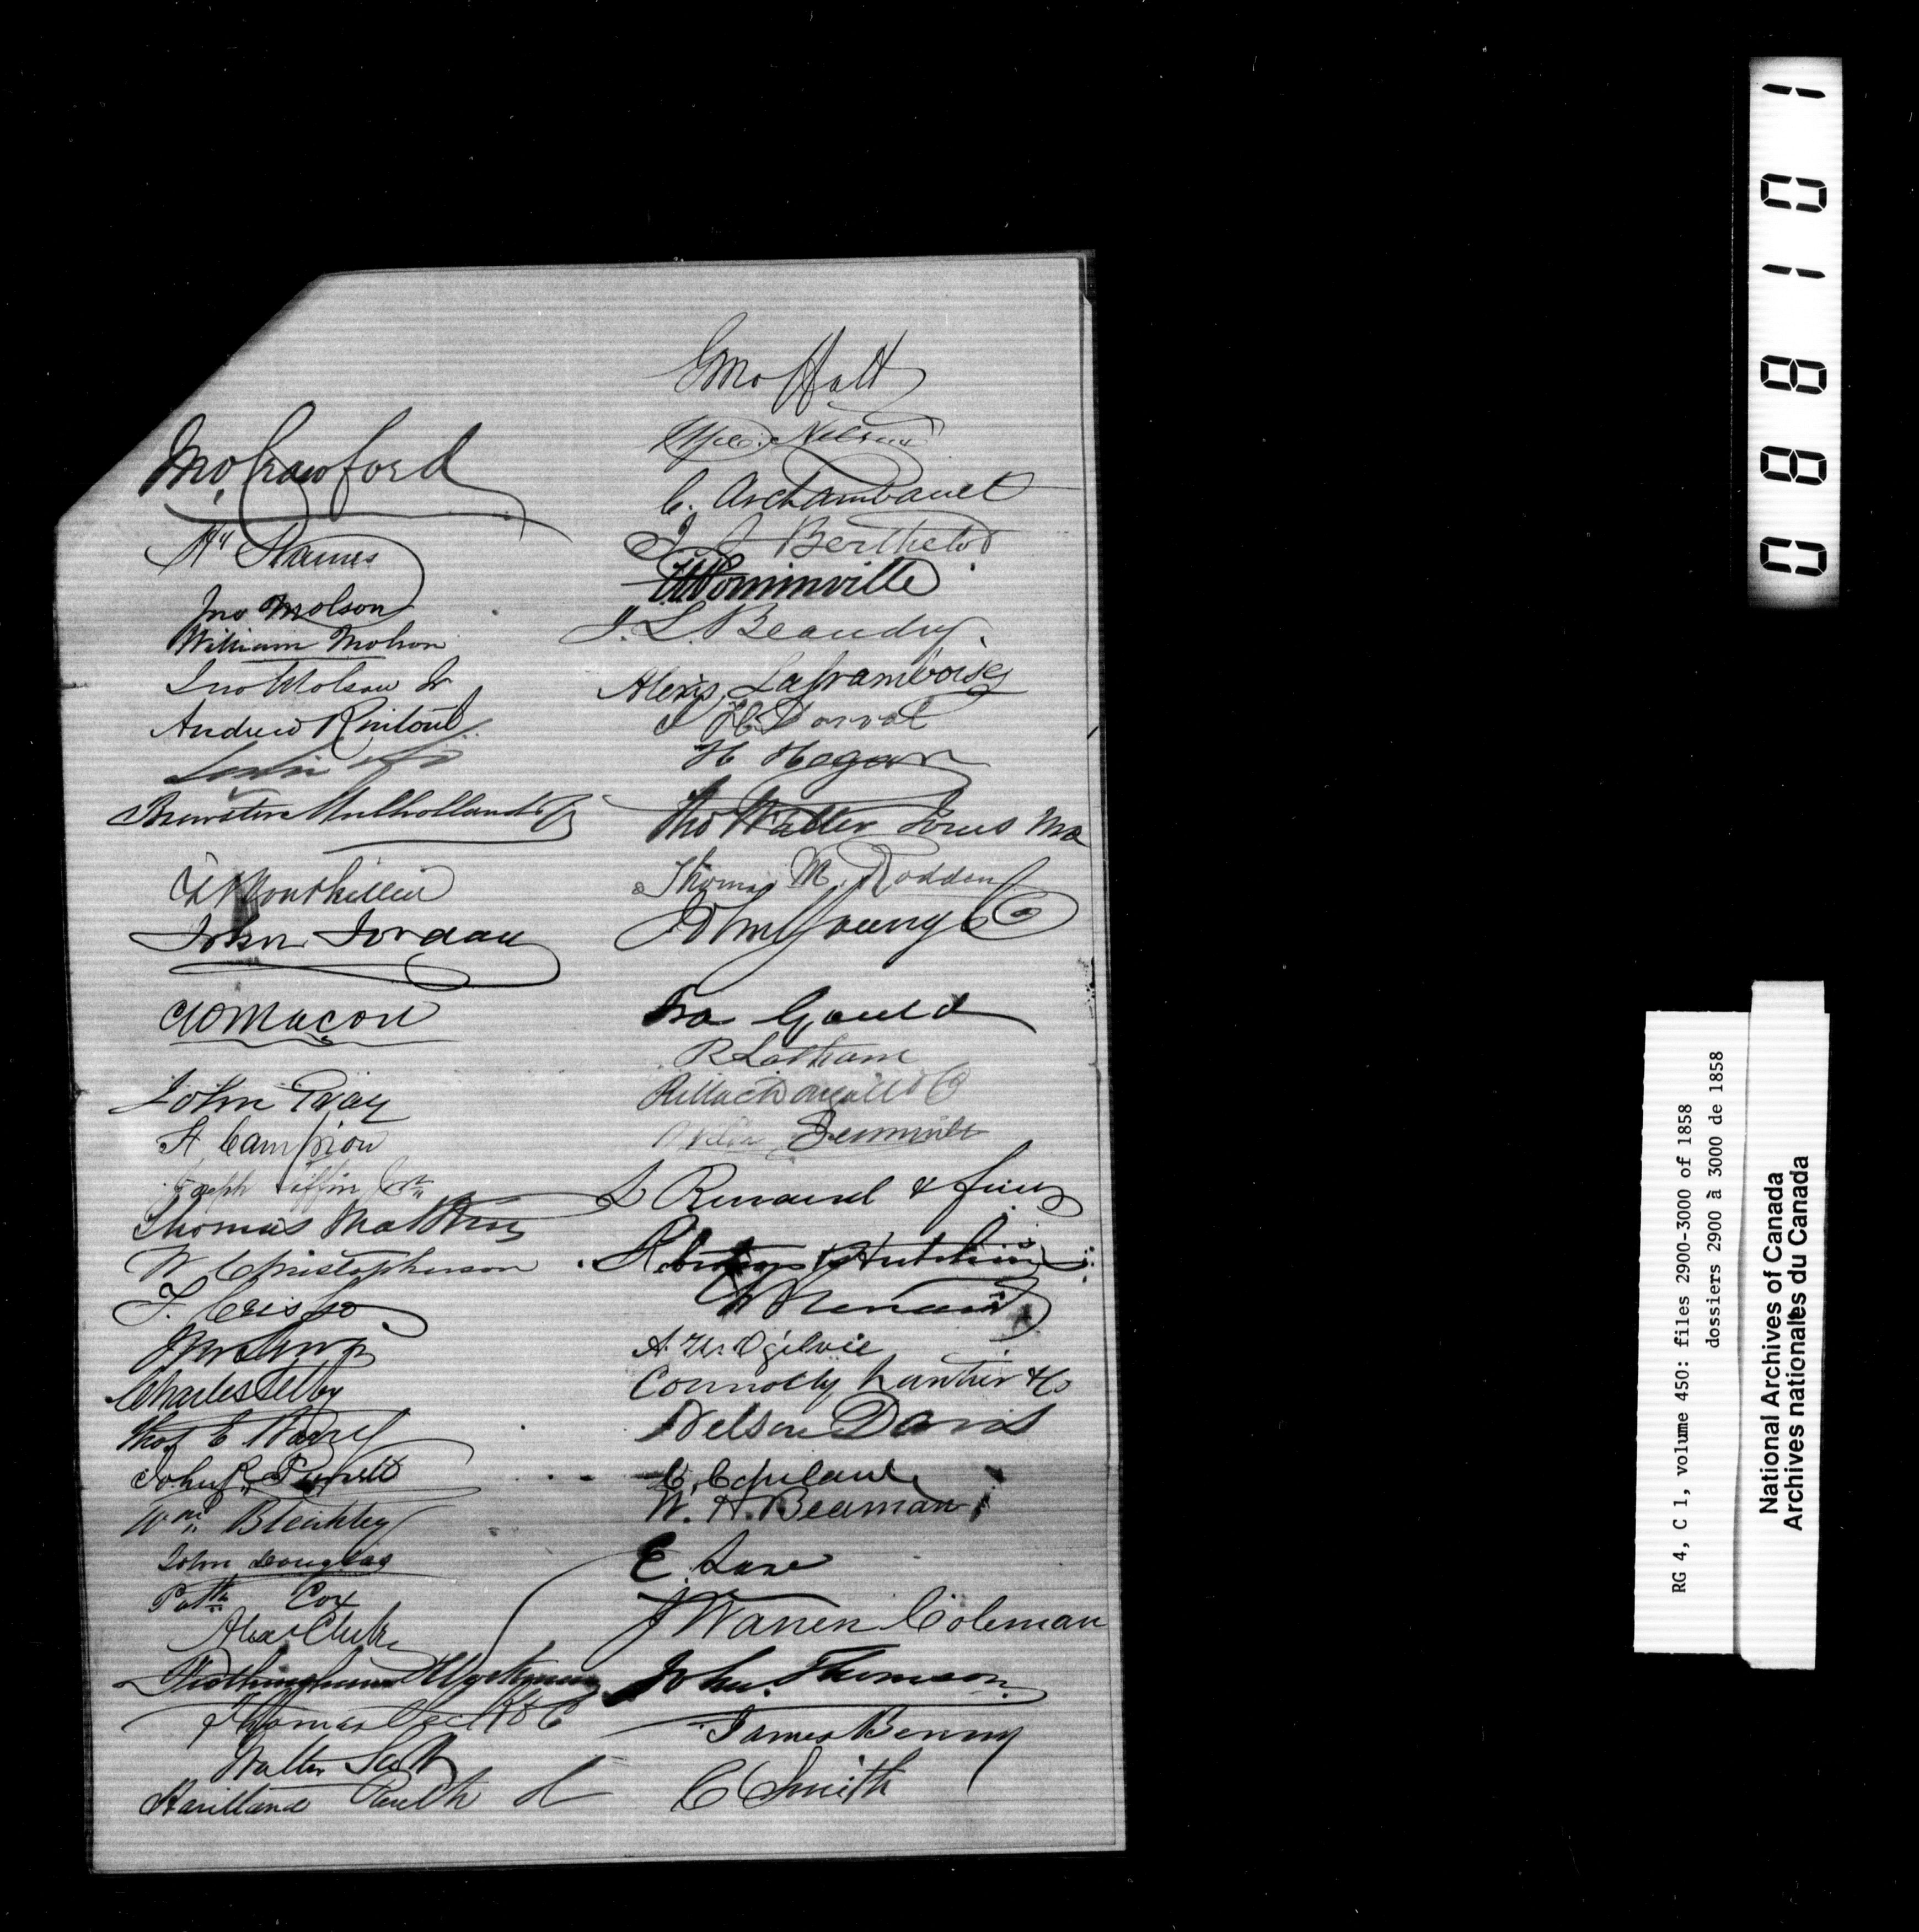 Jno. Crawford
Hy Starnes
Jno Molson
William Molson
Jno Molson Jr
Andrew Rintoul
Brewster Mulholland &
John Jordan
John Gray
H Campion
Joseph Tiffin Jnr
Thomas Matthews
W Christopherson
F. Crispo
Charles Selby
Thos E
John R.
Wm Bleakley
John Douglas
Patk Cox
Alexr Clerk
Frothingham & Workman
Thomas Peck & Co
Walter Scott
Haviland Routh &
G Moffatt
Nelson
C. Archambault
J A Berthelot
J. L. Beaudry.
Alexis Laframboise
H Hogan
Tho Walter Jones MD
Thomas M. Rodden
John Young &
Ira Gould
R Latham
L Renaud & frères
& Hutchins
A. W. Ogilvie
Connolly Lantier & Co
Nelson Davis
C. Copeland
W. H. Beaman
E. Lane
J Warren Coleman
John Thomson
James Benny
C Smith
088101
RG 4, C 1, volume 450: files 2900-3000 of 1858
dossiers 2900 à 3000 de 1858
National Archives of Canada
Archives nationales du Canada